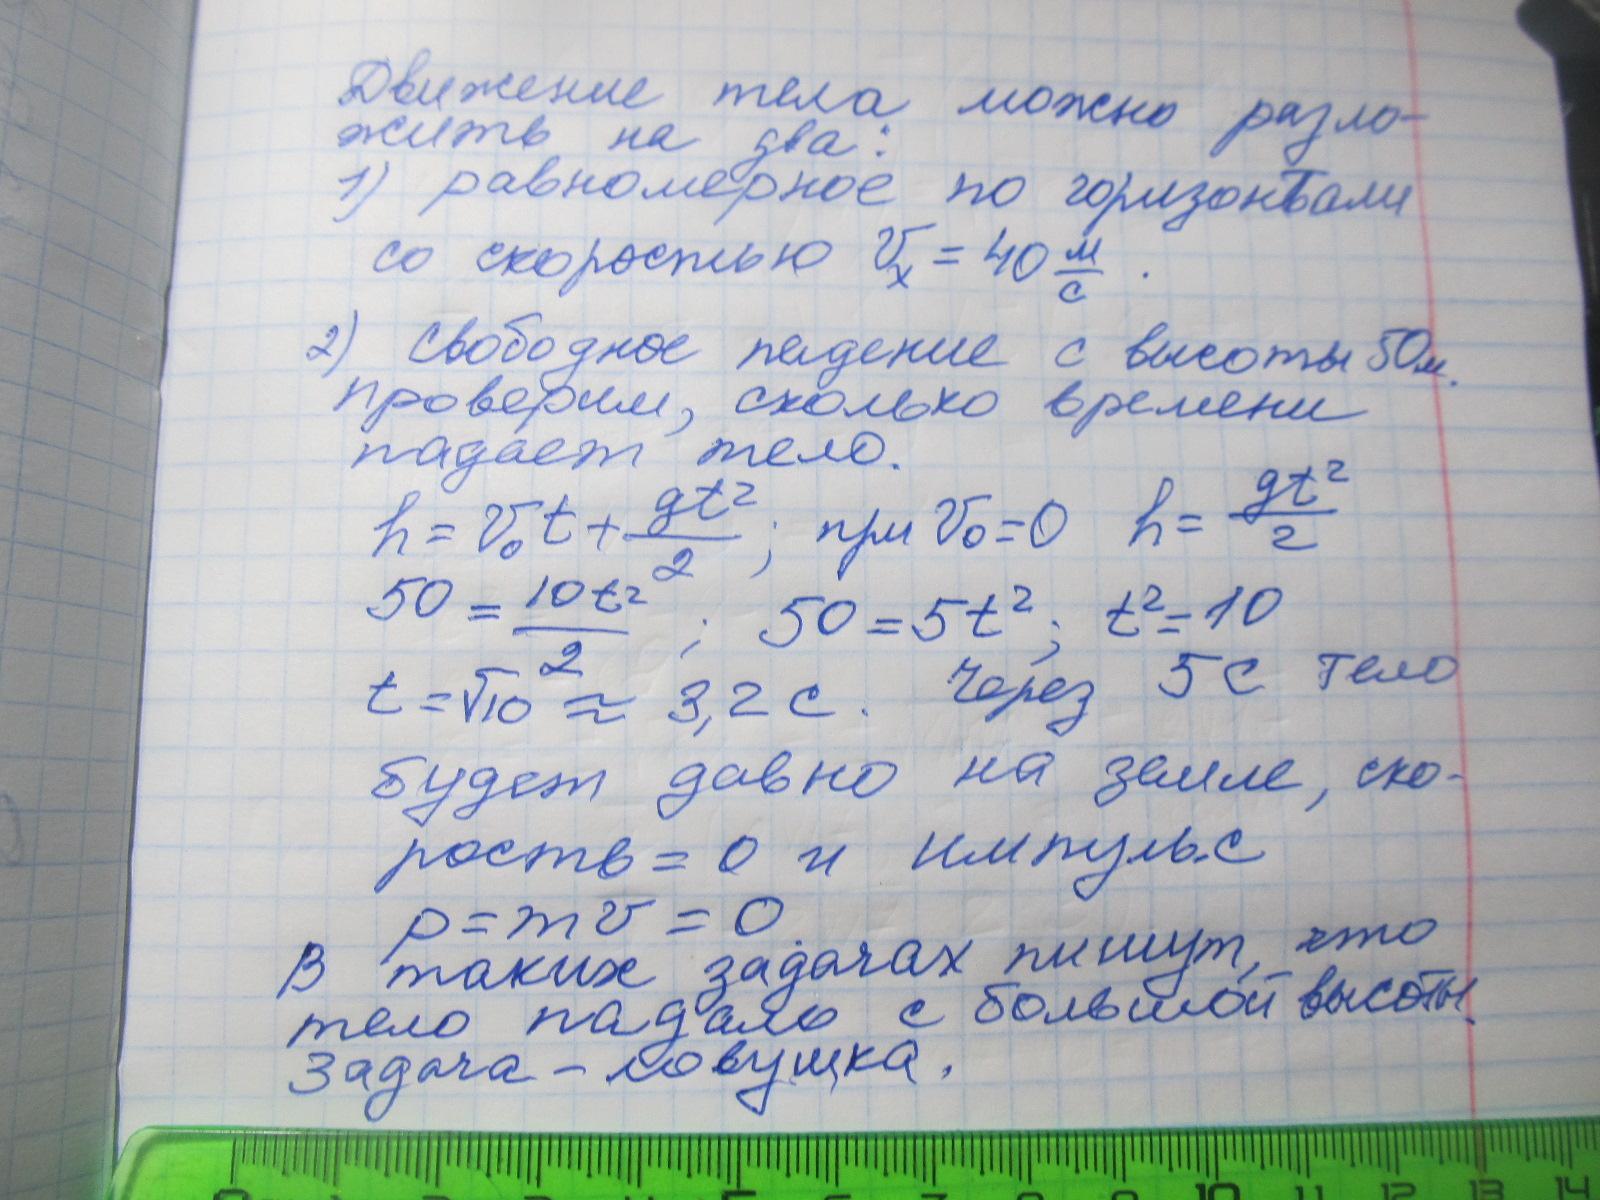 Движение тела можно разло-
жить на два:
1) равномерное по горизонтали
со скоростью Vₓ = 40 м/с .
2) Свободное падение с высоты 50м.
Проверим, сколько времени
падает тело.
h = V₀t + gt²/2 ; при V₀ = 0 h = gt²/2
50 = 10t²/2 ; 50 = 5t² ; t² = 10
t = √10 ≈ 3,2 с. Через 5 с тело
будет давно на земле, ско-
рость = 0 и импульс
p = mv = 0.
В таких задачах пишут, что
тело падало с большой высоты.
Задача – ловушка.
0 1 2 3 4 5 6 7 8 9 10 11 12 13 14